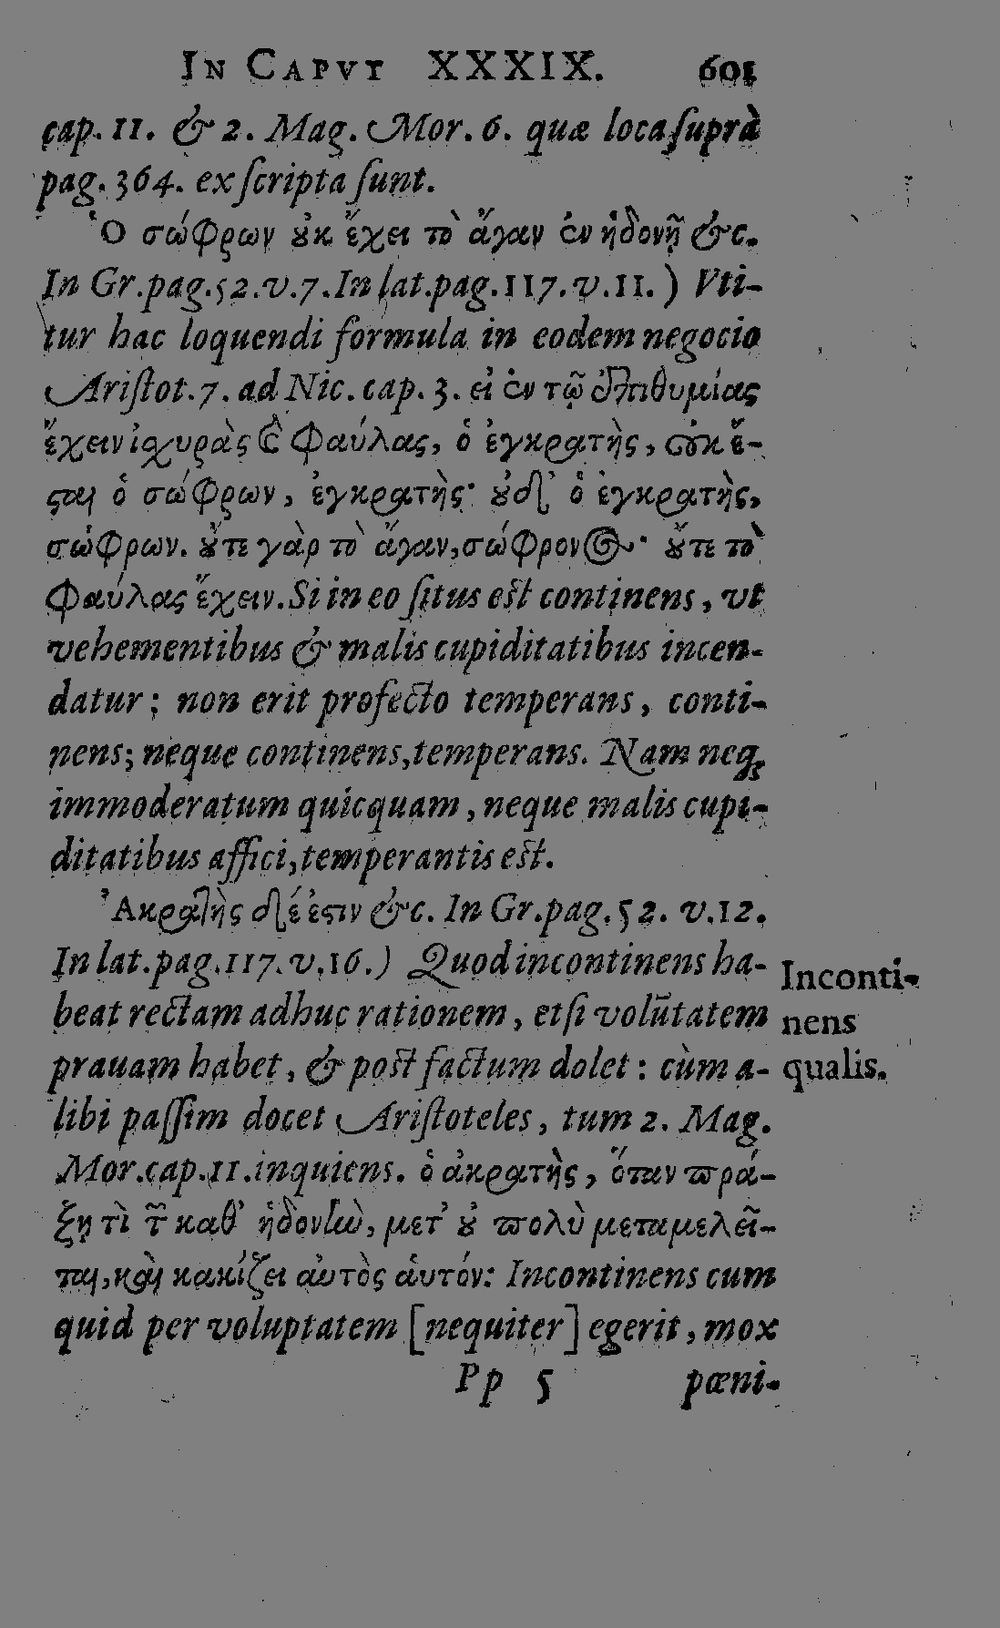 IN CAPVT XXXIX. 601
cap. 11. & 2. Mag. Mor. 6. quæ loca ſuprà
pag. 364. exſcripta ſunt.
Ὁ σώφρων ȣ̓κ ἔχει τὸ ἄγαν ἐν ἡδονῇ &c.
In Gr. pag. 52. v. 7. In lat. pag. 117. v. 11. ) Vti-
tur hac loquendi formula in eodem negocio
Ariſtot. 7. ad Nic. cap. 3. εἰ ἐν τῷ ἐπιθυμίας
ἔχειν ἰχυρὰς ϗ Φαύλας, ὁ ἐγκρατὴς, οὐκ ἔ-
ϛαι ὁ σώφρων, ἐγκρατὴς· ȣ̓δ' ὁ ἐγκρατὴς,
σώφρων. ȣ̓́τε γὰρ τὸ ἄγαν, σώφρονος· ȣ̓́τε τὸ
Φαύλας ἔχειν. Si in eo ſitus est continens, vt
vehementibus & malis cupiditatibus incen-
datur; non erit profecto temperans, conti-
nens; neque continens, temperans. Nam neq;
immoderatum quicquam, neque malis cupi-
ditatibus affici, temperantis est.
Ἀκρατὴς δέ ἐϛιν &c. In Gr. pag. 52. v. 12.
In lat. pag. 117. v. 16.) Quod incontinens ha-
beat rectam adhuc rationem, etſi volūtatem
prauam habet, & post factum dolet: cùm a-
libi paſſim docet Ariſtoteles, tum 2. Mag.
Mor. cap. 11. inquiens. ὁ ἀκρατὴς, ὅταν πρά-
ξῃ τὶ τ͂ καθ' ἡδονὴν, μετ' ȣ̓ πολὺ μεταμελεῖ-
ται, καὶ κακίζει αὐτὸς αὑτόν: Incontinens cum
quid per voluptatem [nequiter] egerit, mox
Pp 5 pœni-
Inconti-
nens
qualis.